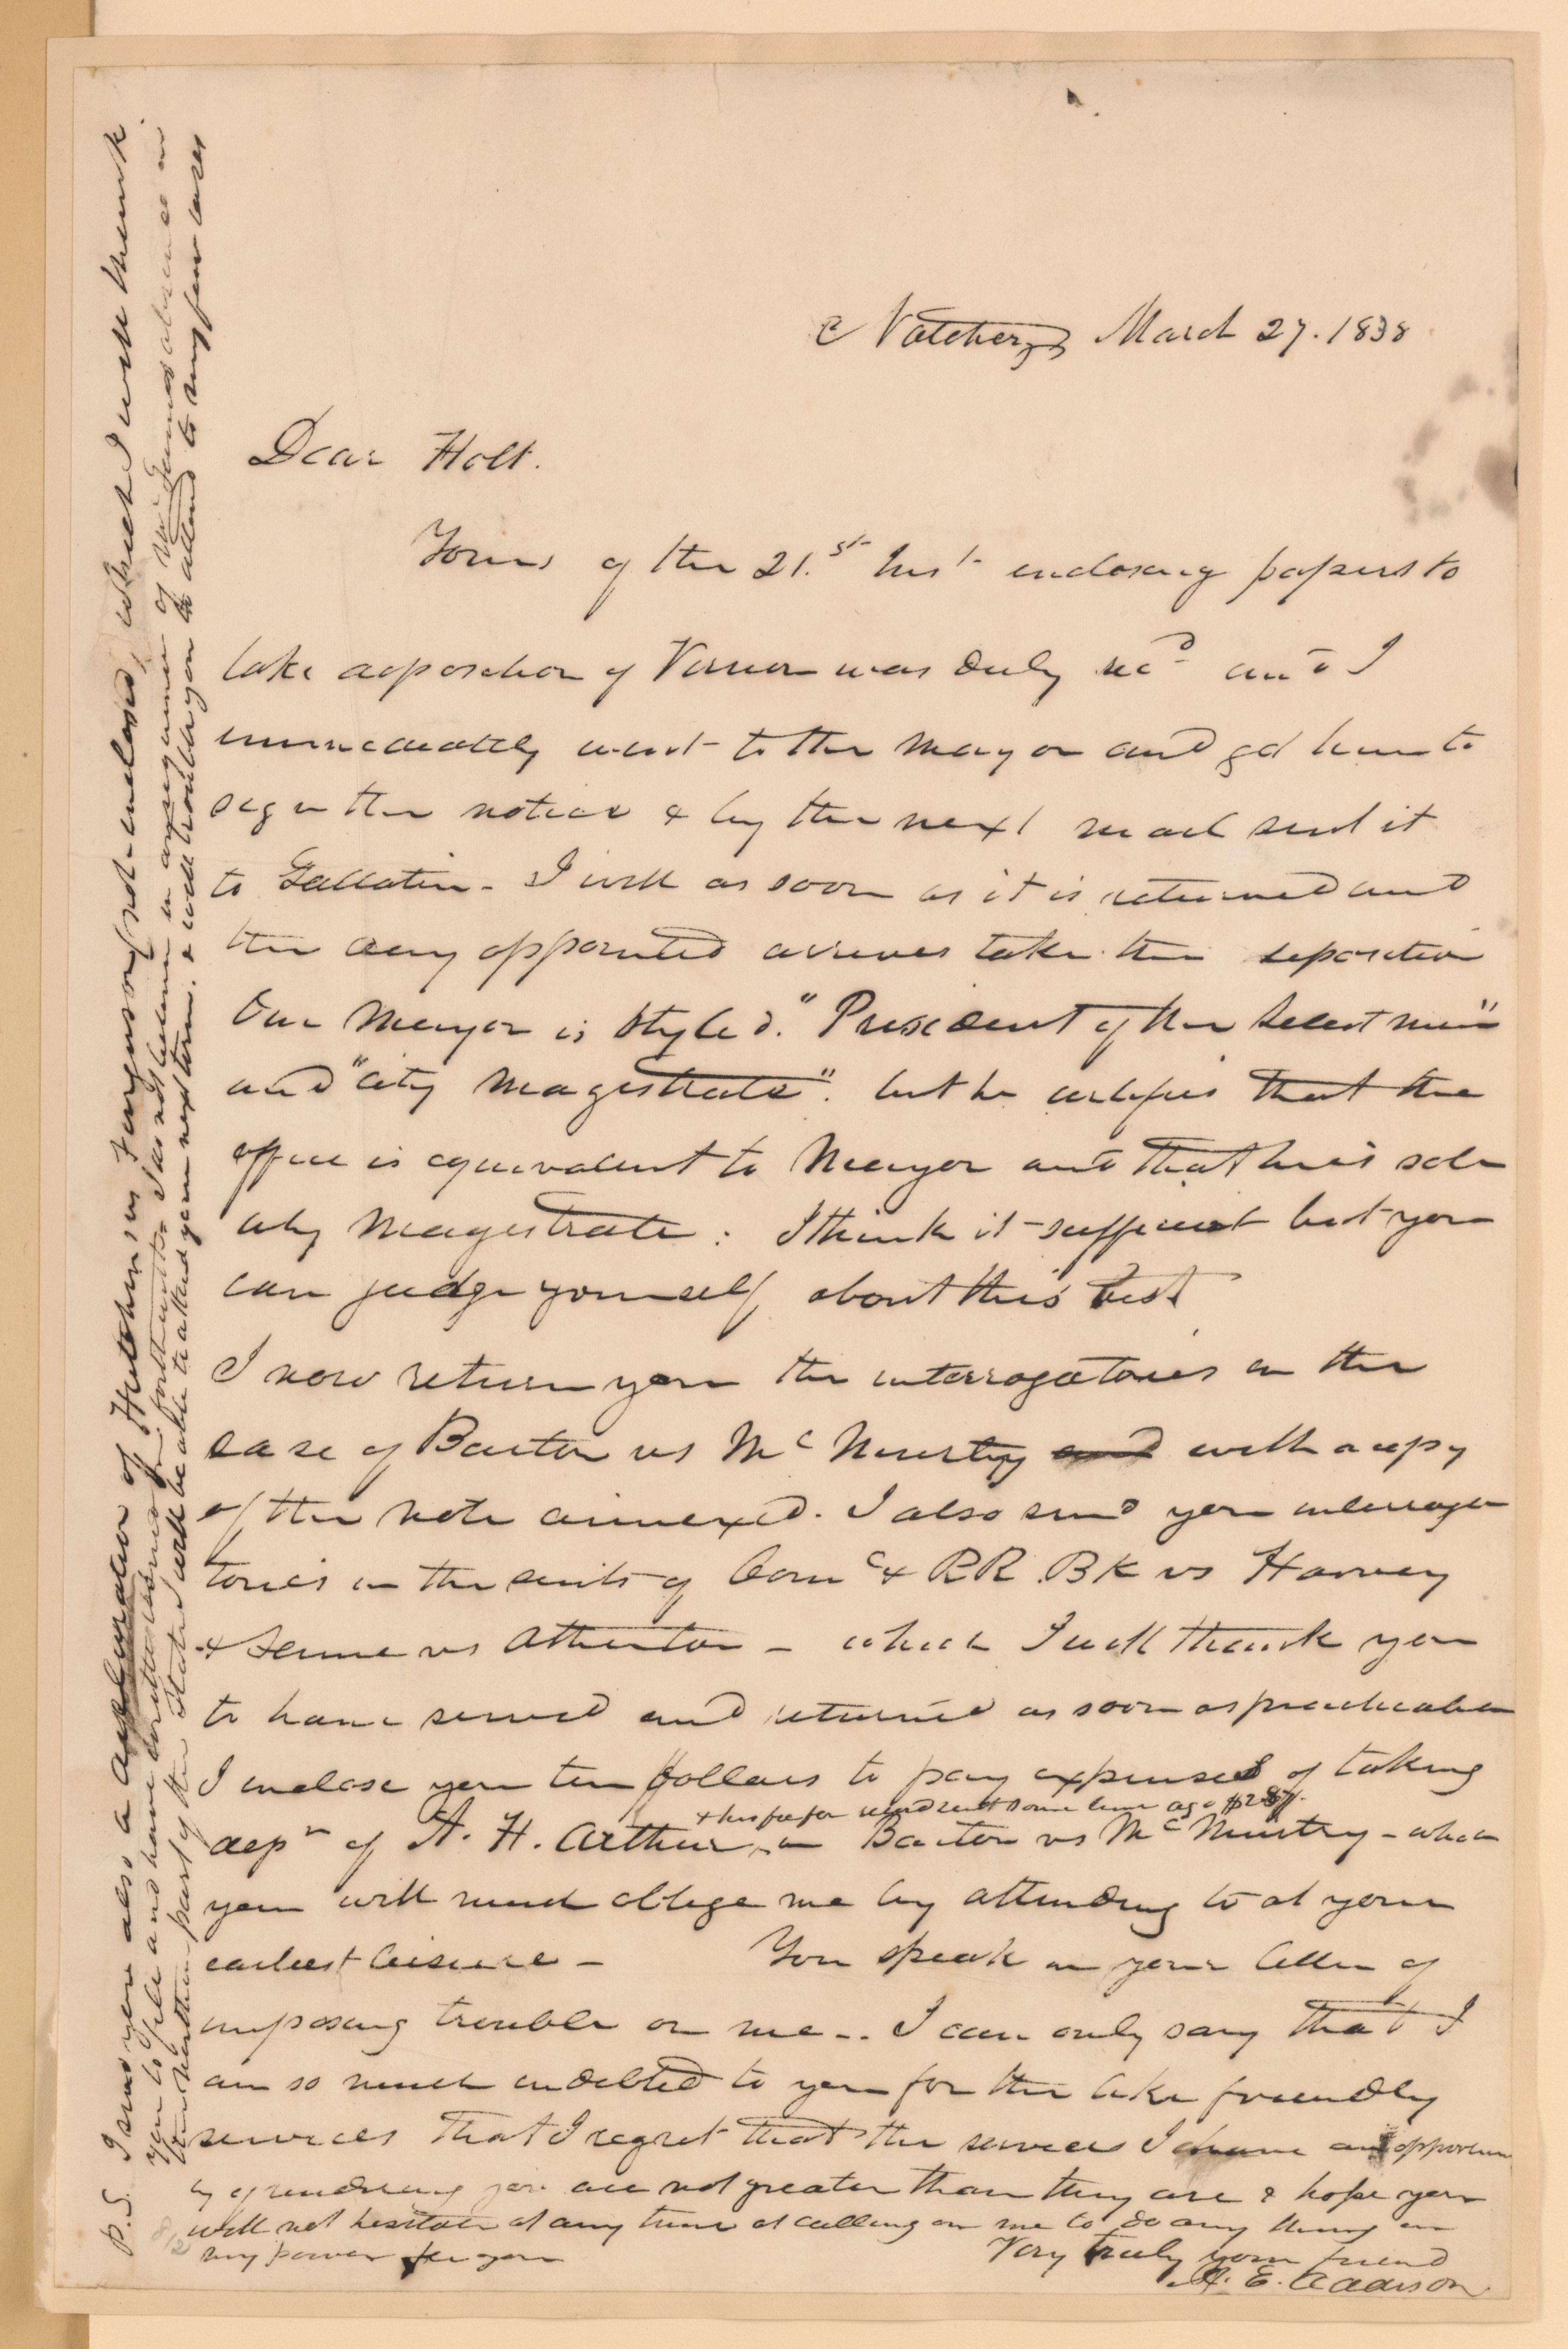 Natchez March 27. 1838
Dear Holt.
Yours of the 21.st Inst enclosing papers to
take deposition of was duly recd and I
immediately went to the Mayor and got him to
sign the notice & by the next mail sent it
to Gallatin - I will as soon as it is returned and
the day appointed arrives take the deposition
Our Mayor is styled. "President of the Select men"
and "City Magistrate". but he certifies that the
office is equivalent to Mayor and that he is sole
city Magistrate: I think it sufficient but you
can judge yourself about this best
I now return you the interrogatories in the
case of Barton vs McMurtry and with a copy
of the note annexed. I also send you interroga
tories in the suits of Comc & RR. BK vs Harvey
& Same vs Atherton - which I will thank you
to have served and returned as soon as practicable
I enclose you ten dollars to pay expenses of taking
& his fee for sent some time ago
depn of A. H. Arthur, in Barton vs McMurtry - which
you will much oblige me by attending to at your
earliest leisure - You speak in your letter of
imposing trouble on me -. I can only say that I
am so much indebted to you for the like friendly
services that I regret that the services I have an opportuni
ty of rendering you are not greater than they are & hope you
will not hesitate at any time at calling on me to do any thing in
my power for you
Very truly your friend
A. E. Addison
P.S. I send you also a of Hutchins in Furguson not enclosed, which I will thank
you to file and have I as not in of absence in
the northern part of the State I will be able to attend your next term. & will trouble you to attend to my few cases